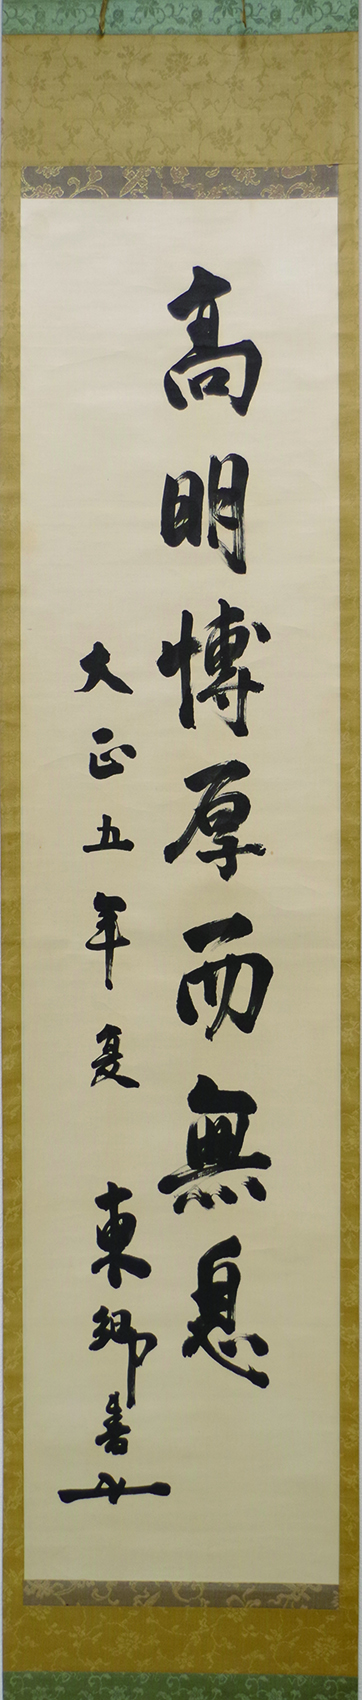 高明博厚而無息
大正五年夏 東郷書